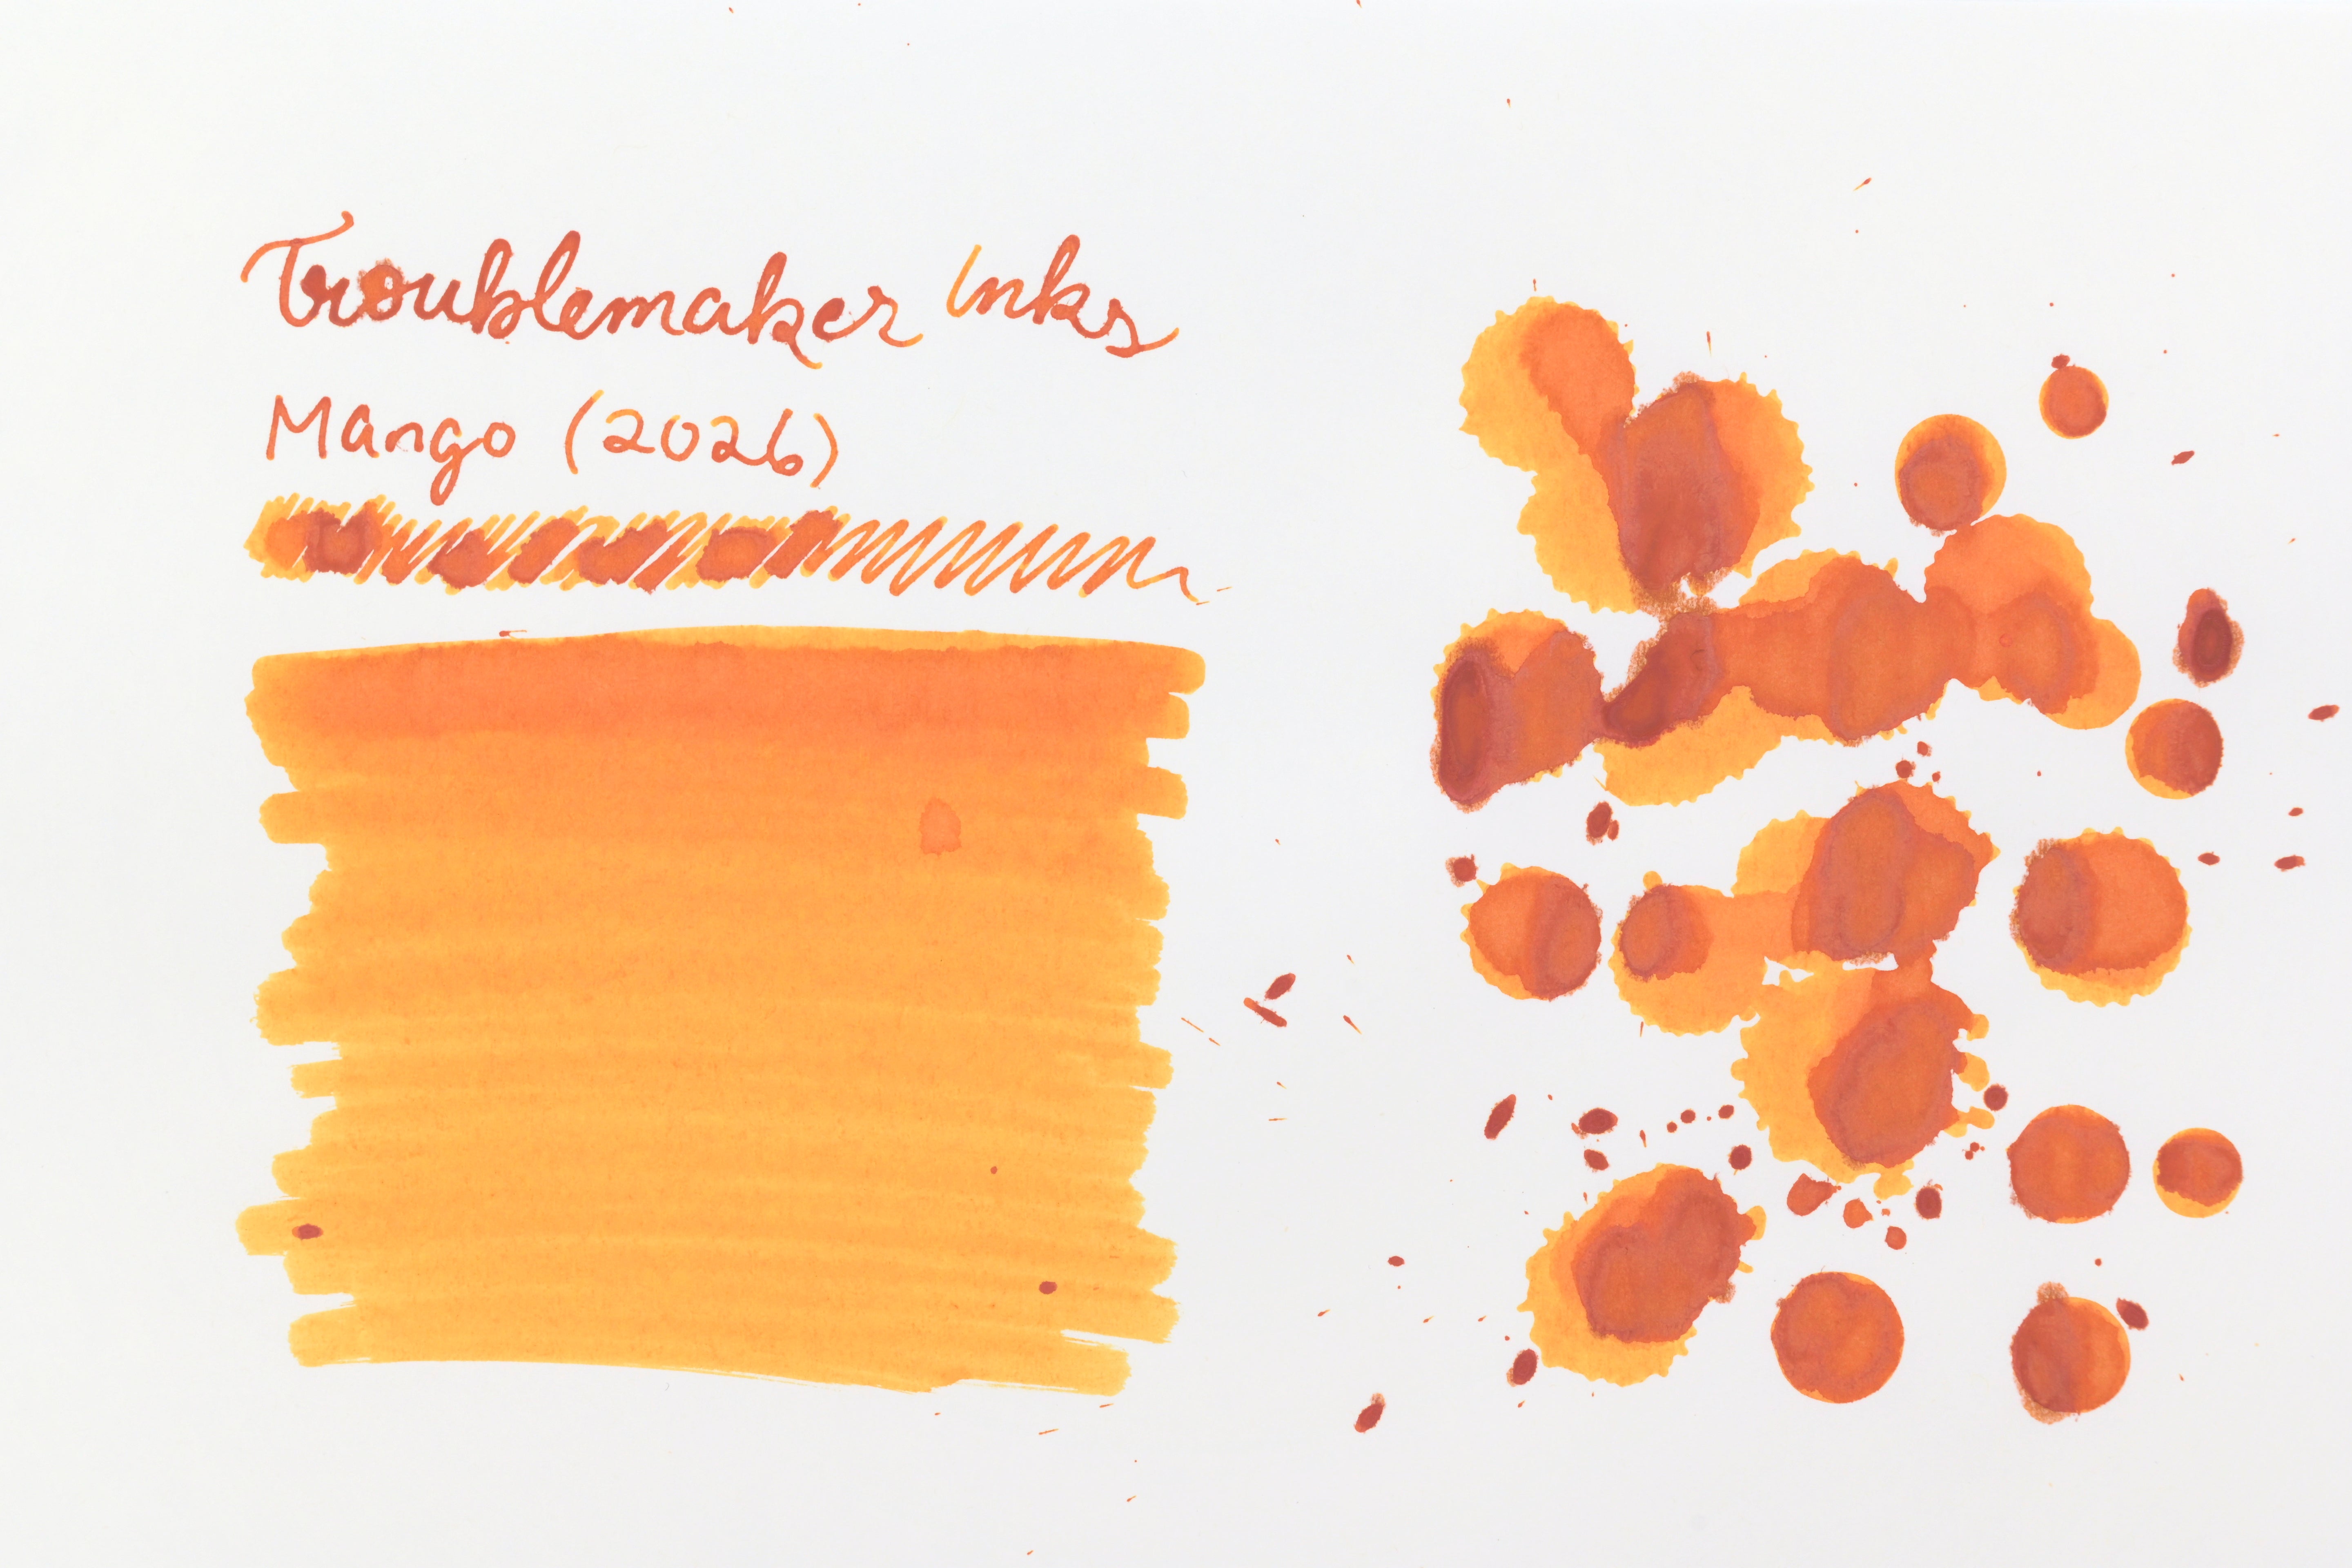 Troublemaker Inks
Mango (2026)